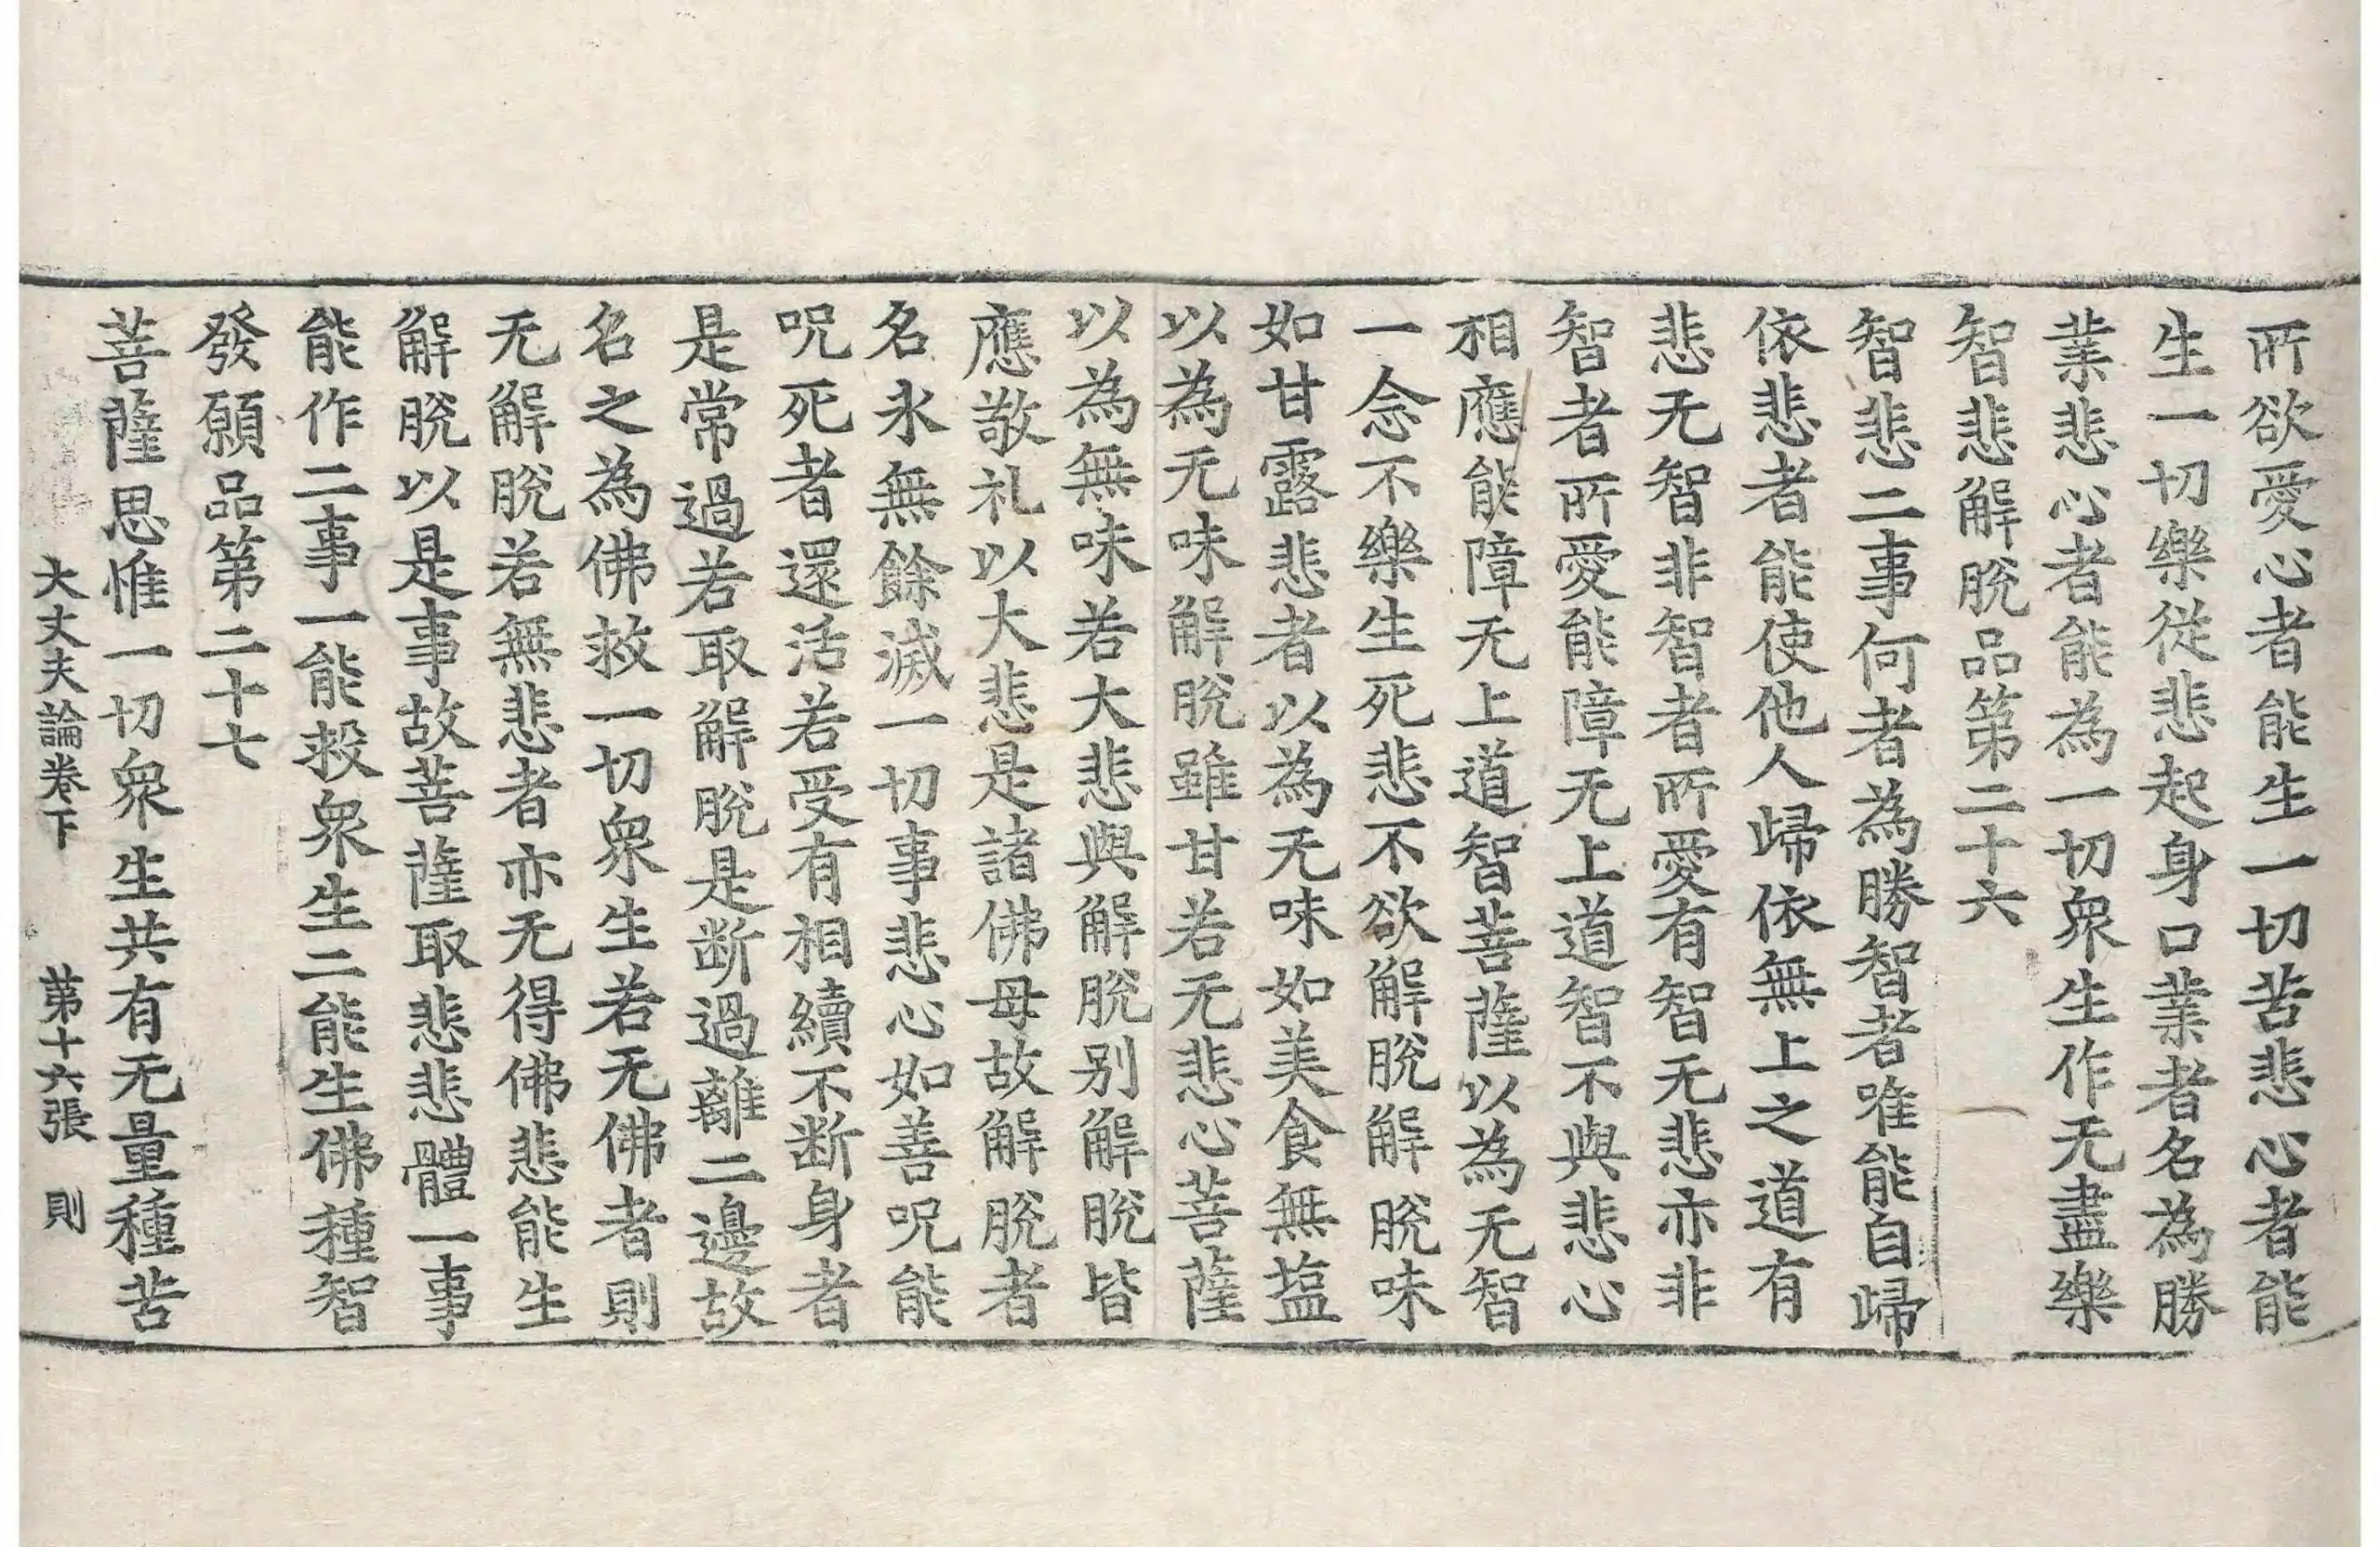 所欲愛心者能生一切苦悲心者能
生一切樂從悲起身口業者名為勝
業悲心者能為一切衆生作无盡樂
智悲解脫品第二十六
智悲二事何者為勝智者唯能自歸
依悲者能使他人歸依無上之道有
悲无智非智者所愛有智无悲亦非
智者所愛能障无上道智不與悲心
相應能障无上道智菩薩以為无智
一念不樂生死悲不欲解脫解脫味
如甘露悲者以為无味如美食無塩
以為无味解脫雖甘若无悲心菩薩
以為無味若大悲與解脫别解脫皆
應敬礼以大悲是諸佛母故解脫者
名永無餘滅一切事悲心如善呪能
呪死者還活若受有相續不断身者
是常過若取解脫是断過離二邊故
名之為佛救一切衆生若无佛者則
无解脫若無悲者亦无得佛悲能生
解脫以是事故菩薩取悲悲體一事
能作二事一能救衆生二能生佛種智
發願品第二十七
菩薩思惟一切衆生共有无量種苦
大丈夫論卷下 第十六張 則